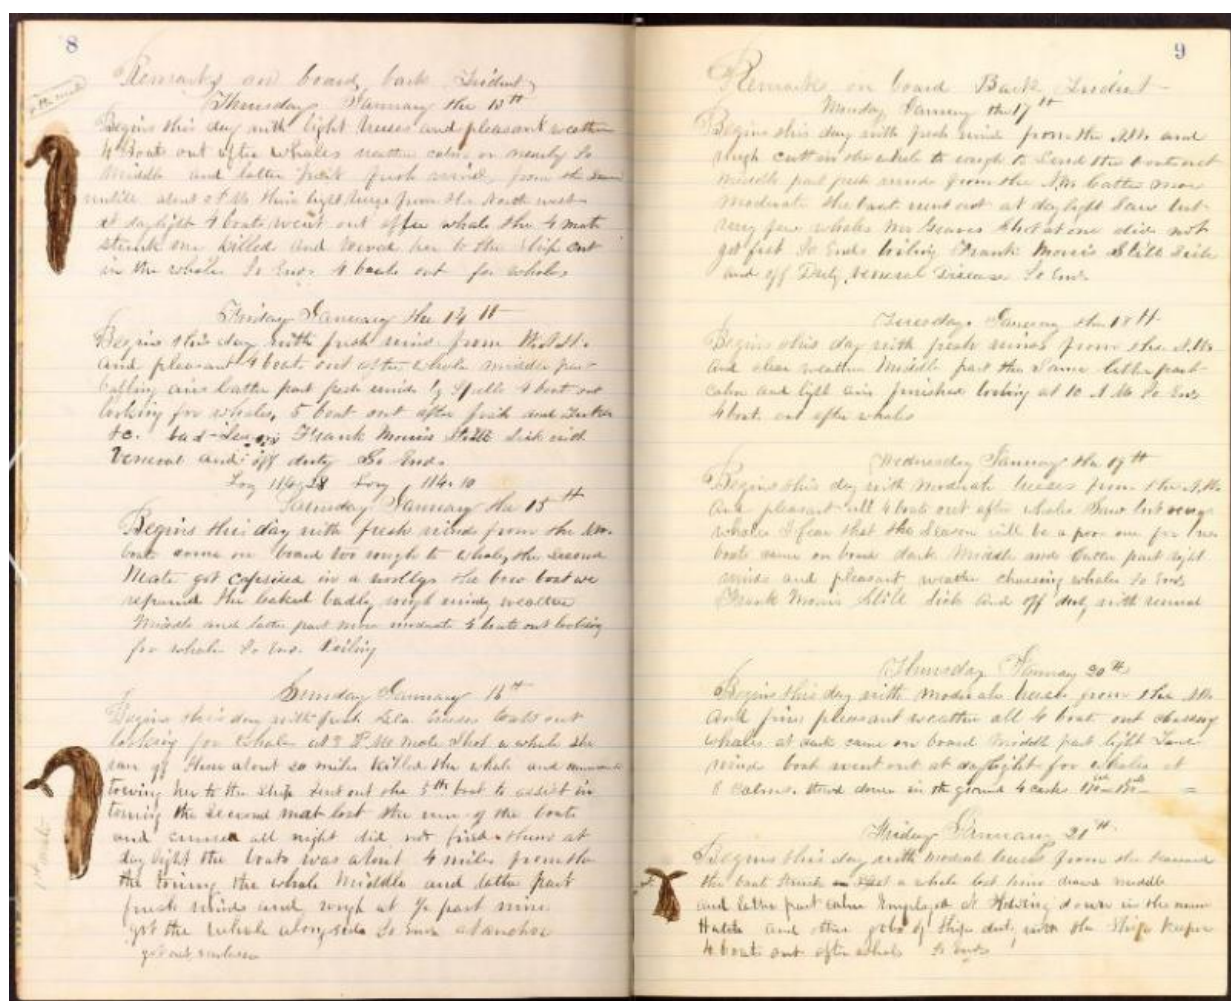 8
Remarks on board bark Trident
Thursday January the 13th
Begins this day with light breeses and pleasant weather
4 Boats out after whales weather calm or nearly so
Middle and latter part fresh wind from the same
untill about at M then light from the North west
at daylight 4 boats went out after whale the 4 mate
struck one killed and towed her to the Ship cut
in the whale So Ends 4 boats out for whales
Friday January the 14th
Begins this day with fresh wind from
and pleasant 4 boats out after whale middle part
baffling airs latter part fresh wind by Spells 4 boat out
looking for whales, 5 boat out after fish and
&c. bad Frank Morris Still Sick with
Veneral and off duty So Ends
Long 114 10
Saturday January the 15th
Begins this day with fresh winds from the
boat came on board too rough to whale, the Second
Mate got capsised in a the bow boat we
repaired She leaked badly rough windy weather
Middle and latter part more moderate 4 boats out looking
for whale So Ends Boiling
Sunday January 16th
Begins this day with fresh Sea breeses boats out
looking for whale at 3 P.M. Mate Shot a whale She
ran of Shore about 20 miles killed the whale and
towing her to the Ship Sent out the 5th boat to assist in
towing the Second mate lost the run of the boats
and cruised all night did not find them at
day light the boats was about 4 miles from the
the towing the whale Middle and latter part
fresh winds and rough at ½ past nine
got the whale alongside So Ends at anchor
9
Remarks on board Bark Trident
Monday January the 17th
Begins this day with fresh wind from the N.W. and
rough cutt in the whale to rough to Send the boats out
Middle part fresh winds from the N.W. Latter more
moderate the boat went out at daylight Saw but
very few whales Mr Graves Shot at one did not
get fast So Ends boiling Frank Morris Still Sick
and off Duty Veneral Disease So Ends
Tuesday January the 18th
Begins this day with fresh winds from the N.W.
and clear weather Middle part the Same latter part
calm and light airs finished boiling at 10 A.M. So Ends
4 boat out after whales
Wednesday January the 19th
Begins this day with Moderate breeses from the N.W.
and pleasant all 4 boats out after whales Saw but
whales I fear that the Season will be a poor one for
boats came on board dark Middle and latter part light
winds and pleasant weather chaseing whales So Ends
Frank Morris Still Sick and off duty with veneral
Thursday January 20th
Begins this day with Moderate breese from the N.W.
and fine pleasant weather all 4 boat out chasing
whales at dark came on board Middle part light Land
winds boat went out at daylight for whales at
8 Calms. Stowd down in the ground 4 casks
Friday January 21th
Begins this day with moderate breeses from the
the boat Struck a whale lost him drawd middle
and latter part calm Employed at Stowing down in the main
Hatch and other jobs of Ship duty, with the Ship Keeper
4 boats out after whales So Ends